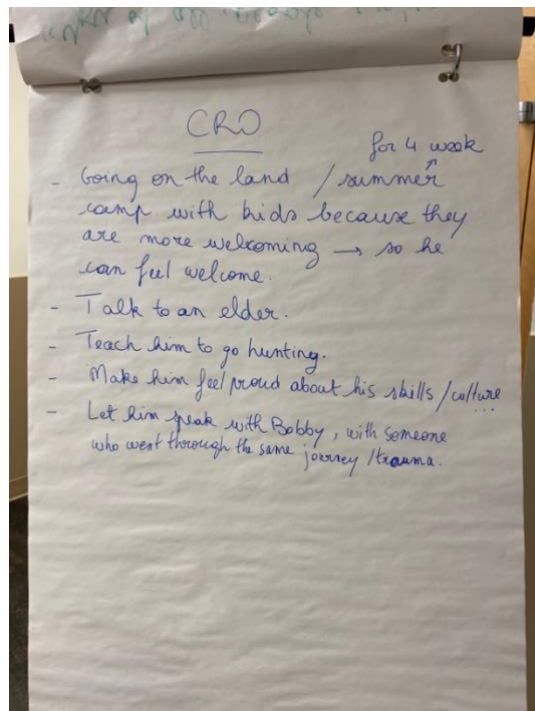 CRO
for 4 week
- Going on the land / summer
camp with kids because they
are more welcoming → so he
can feel welcome.
- Talk to an elder.
- Teach him to go hunting.
- Make him feel proud about his skills / culture
...
- Let him speak with Bobby, with someone
who went through the same journey / trauma.